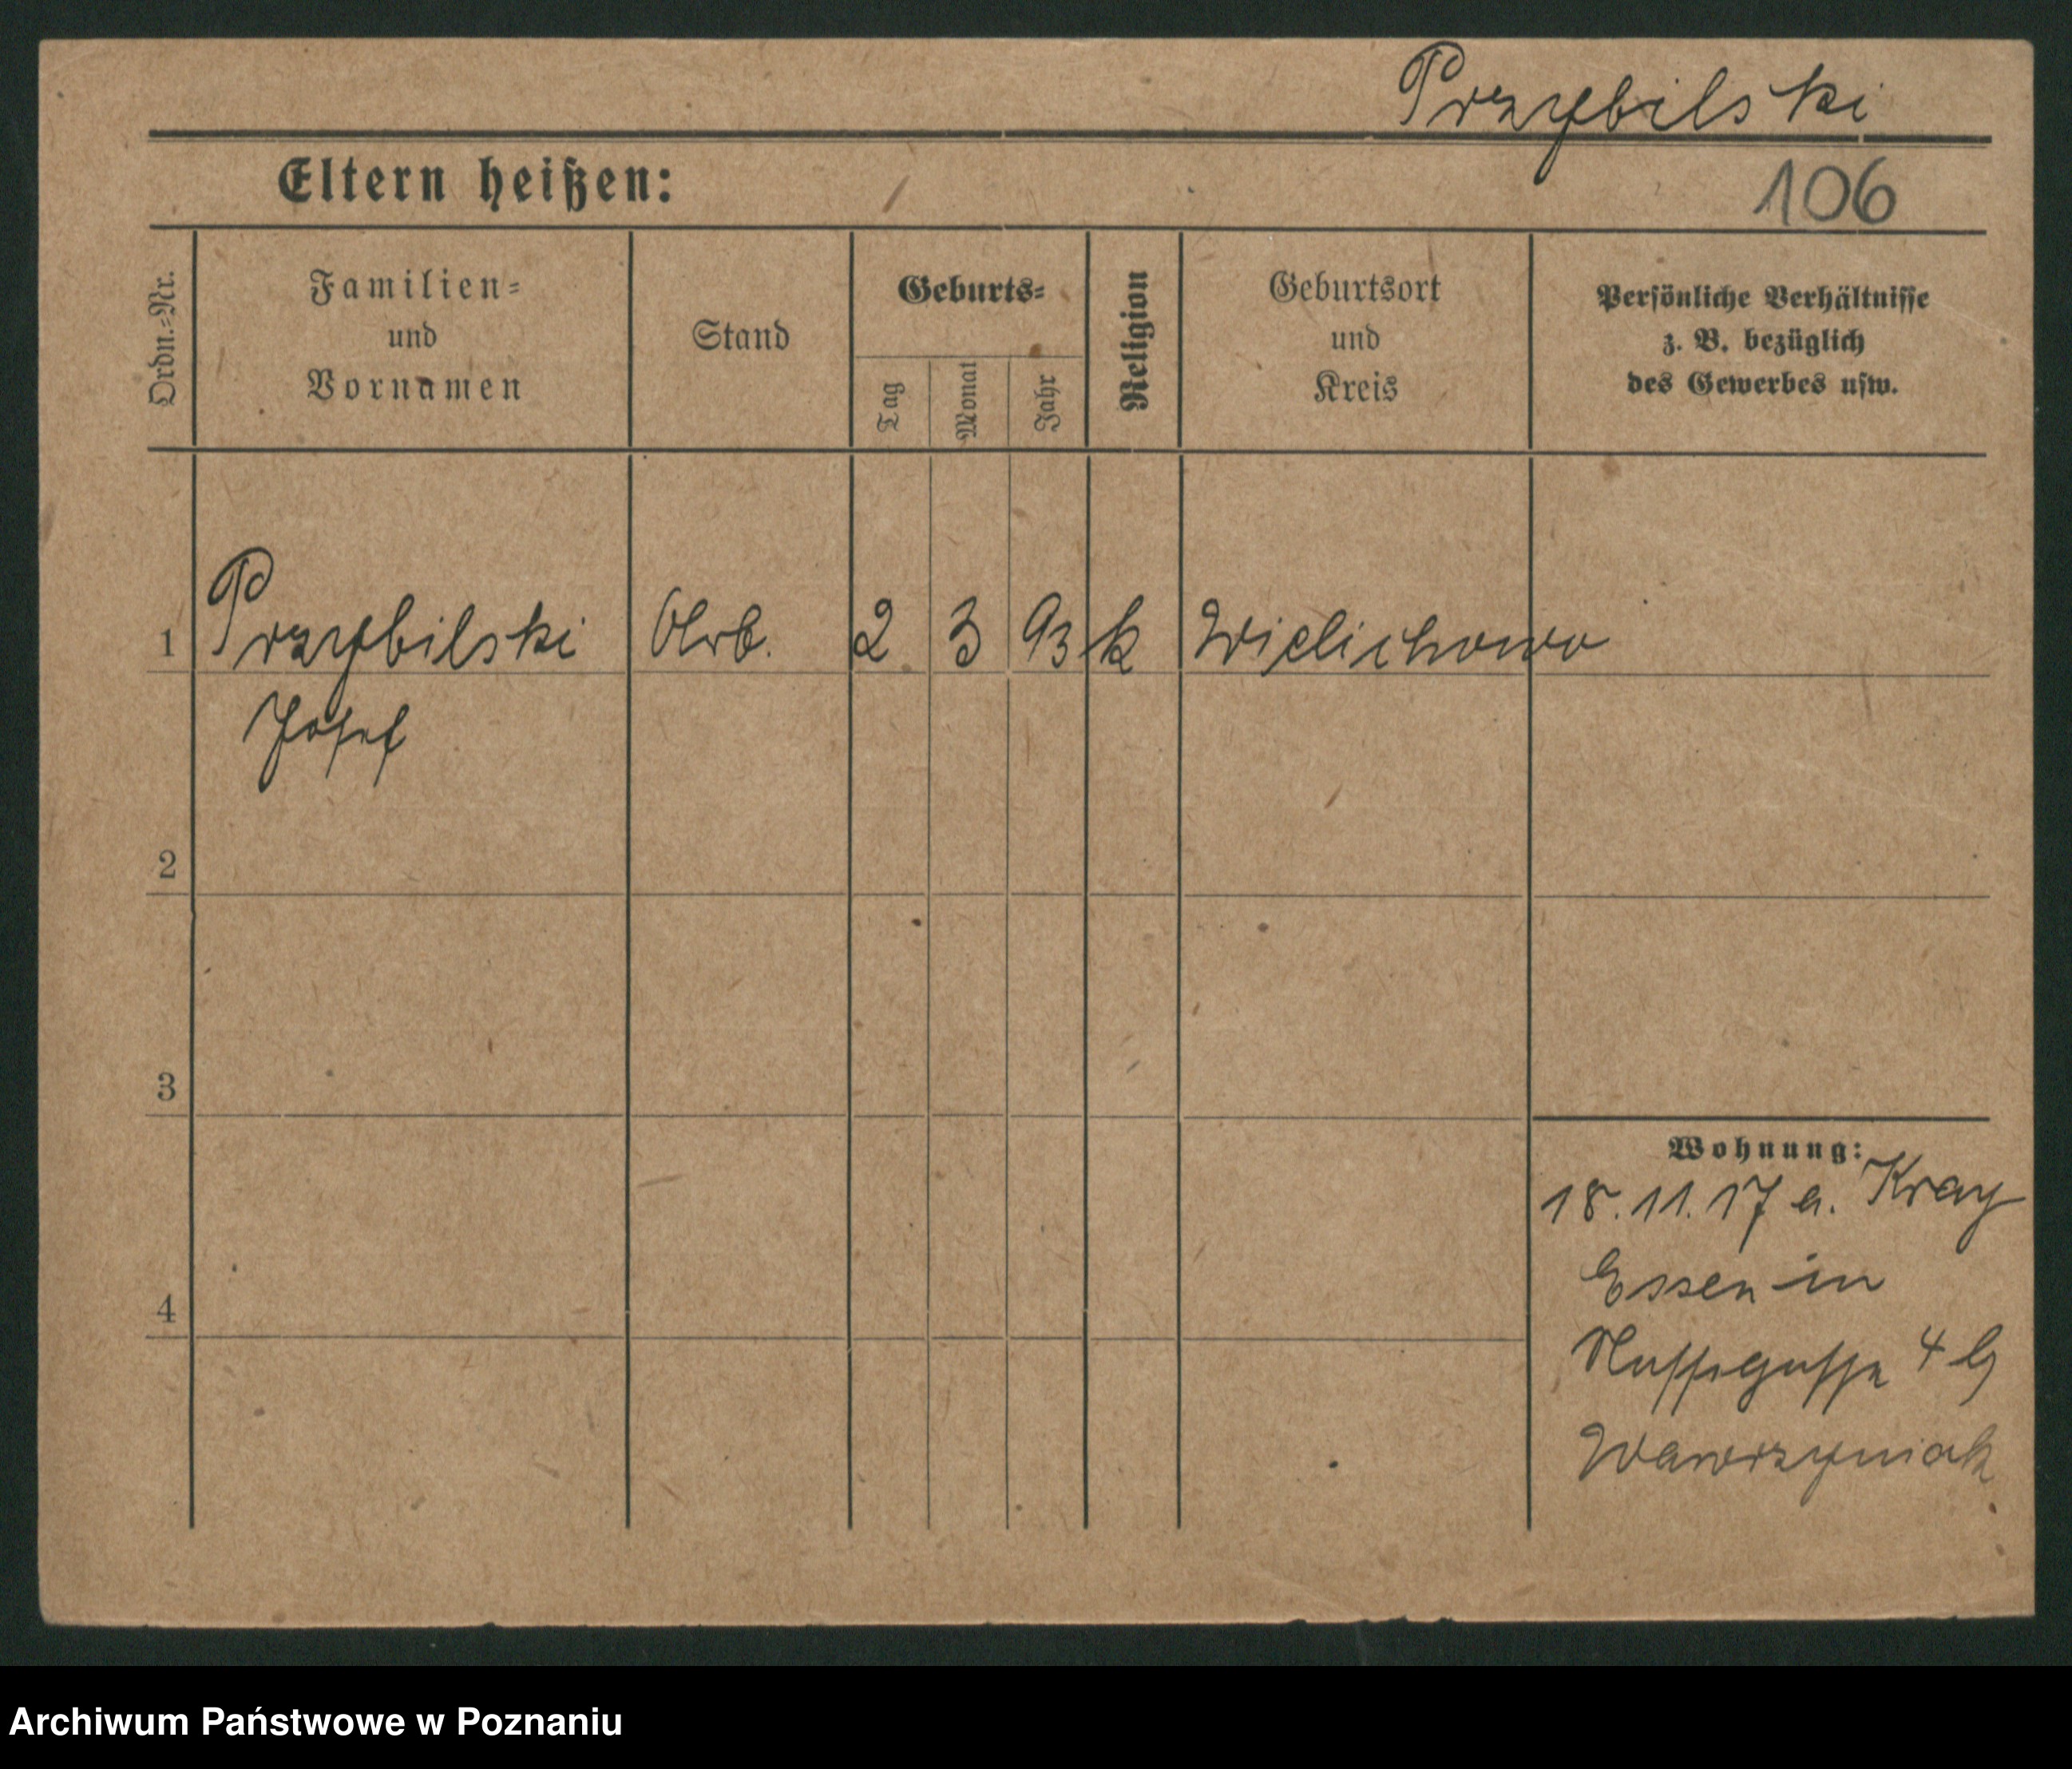 Przybilski
Eltern heißen:
106
Ordn.=Nr.
Familien=
und
Vornamen
Stand
Geburts=
Tag
Monat
Jahr
Religion
Geburtsort
und
Kreis
Persönliche Verhältnisse
z. B. bezüglich
des Gewerbes usw.
1 Przybilski Arb. 2 3 93 k Wielichowo
Josef
2
3
4
Wohnung:
18.11.17 a. Kray
Essen in
4
Wawrzyniak
Archiwum Państwowe w Poznaniu